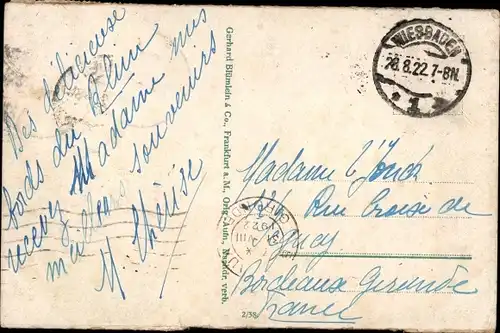 Des délicieux
bords du Rhin
recevez Madame mes
meilleurs souvenirs
Thérèse
Gerhard Blümlein & Co., Frankfurt a.M., Orig.-Aufn., Nachdr. verb.
2/38
WIESBADEN
28.8.22.7-8N.
* 1
Madame
Rue Croix de
Seguey
Bordeaux Gironde
France